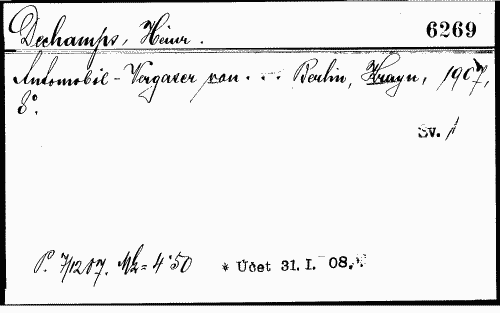 Dechamps, Heinr. 6269
Automobil-Vergaser von... Berlin, Krayn, 1907,
8°.
Sv. 1
P. 7/12 07. Mk = 4·50 * Účet 31. I. 08.